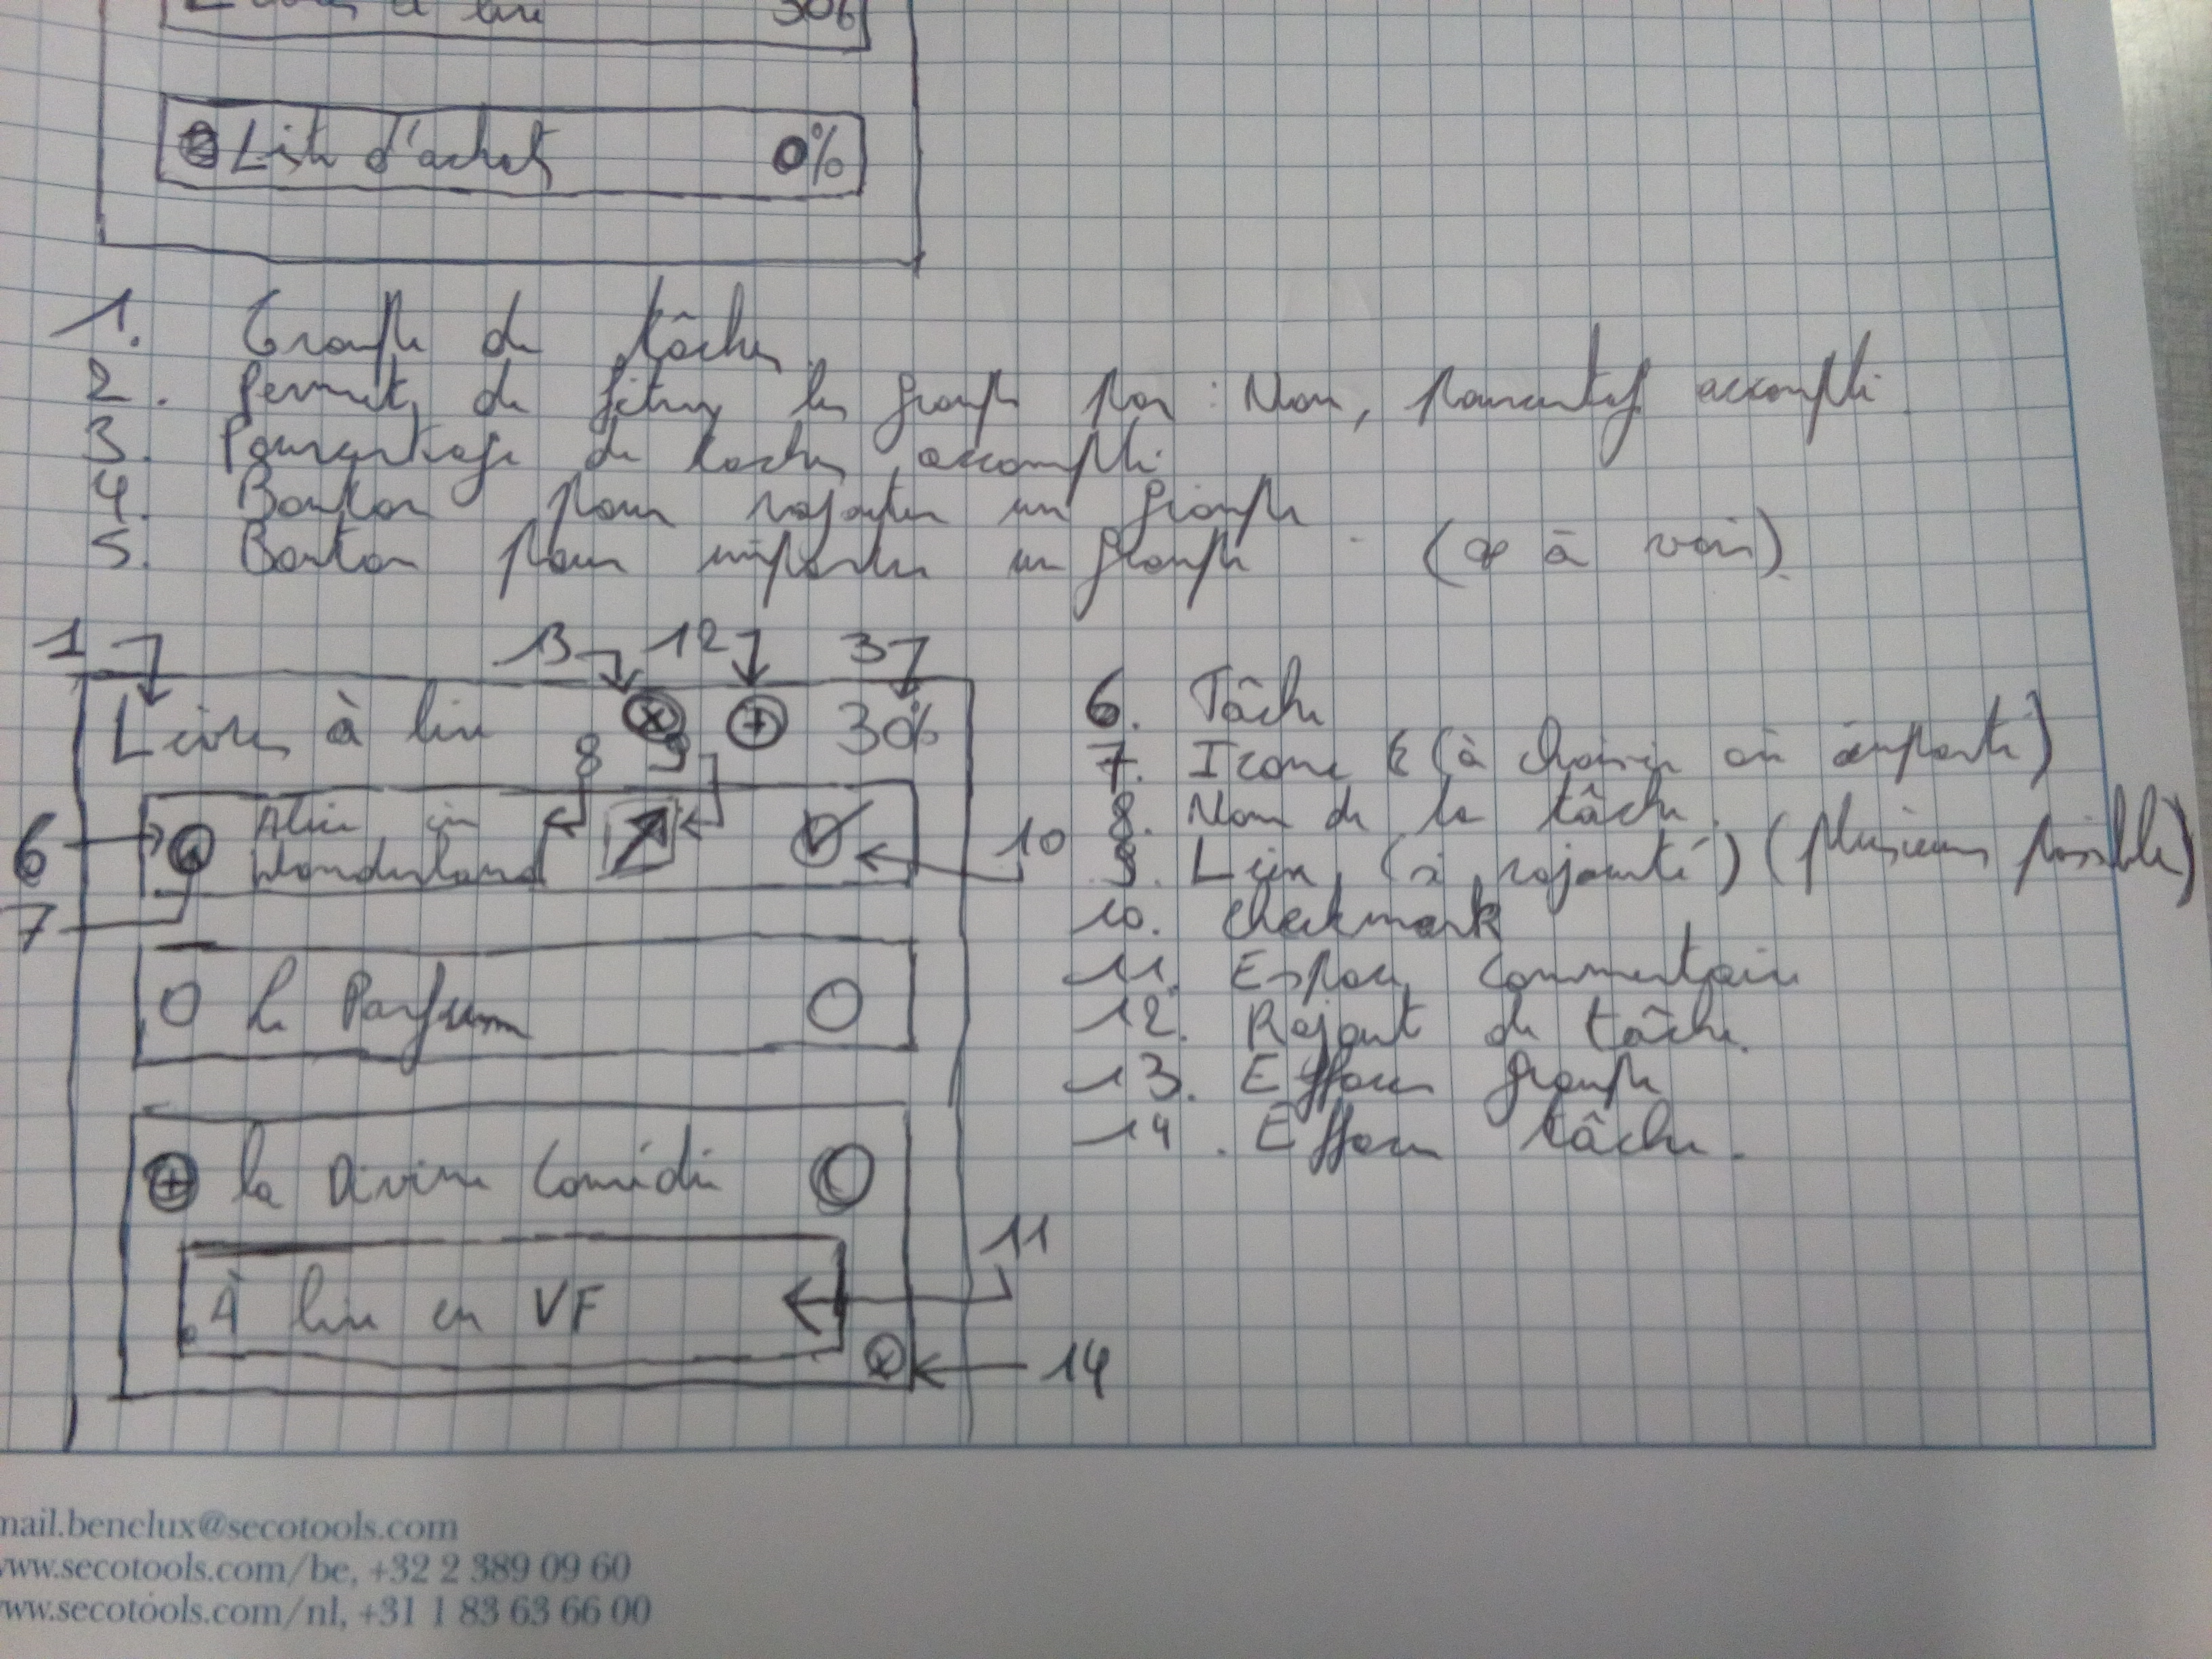 Livres à lire 30%
Liste d'achats 0%
1. Groupe de tâches
2. Permet de filtrer les groupes par : Nom, pourcentage accompli.
3. Pourcentage de taches accompli.
4. Bouton pour rajouter un groupe
5. Bouton pour importer un groupe (à voir)
1 13 12 3
Livres à lire 30%
8 9
6 Alice in
Wonderland 10
7
Le Parfum
La Divine Comédie
11
À lire en VF
14
6. Tâche
7. Icone (à choisir ou importé)
8. Nom de la tâche.
9. Lien (à rajouté) (plusieurs possible)
10. Checkmark
11. Espace commentaire
12. Rajout de tâche.
13. Effacer groupe
14. Effacer tâche.
mail.benelux@secotools.com
www.secotools.com/be, +32 2 389 09 60
www.secotools.com/nl, +31 1 83 63 66 00